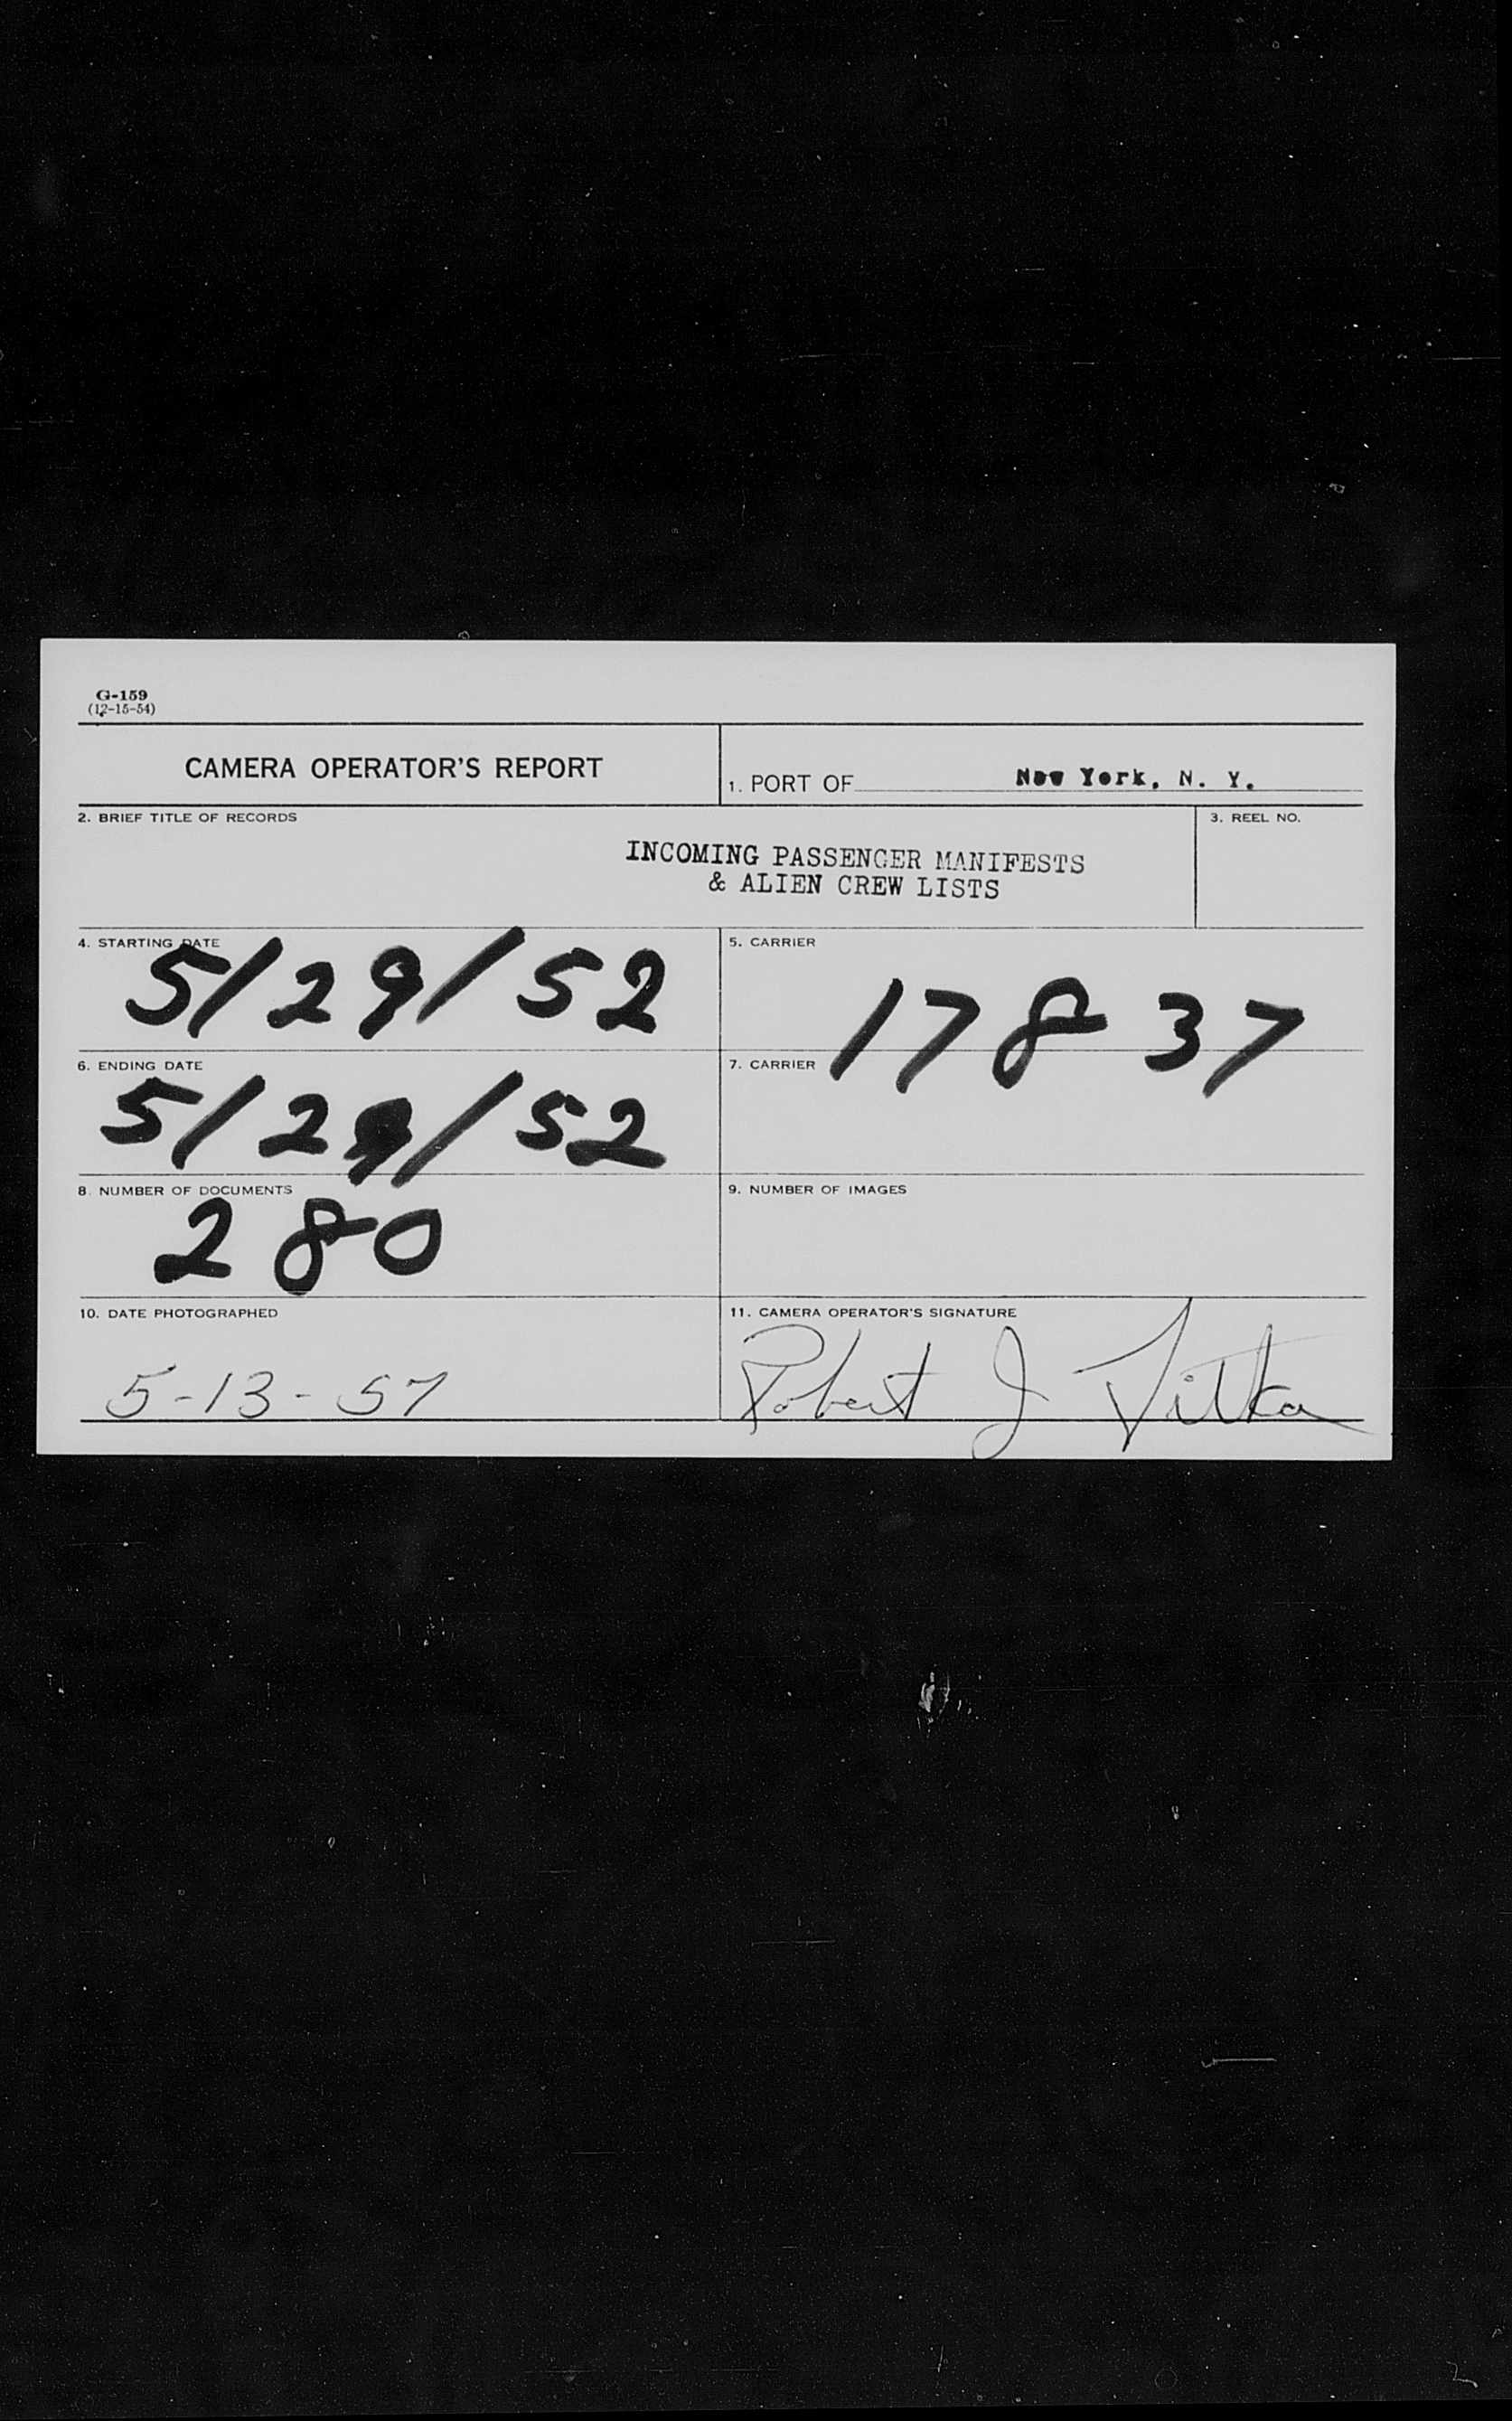 G-159
(12-15-54)
CAMERA OPERATOR'S REPORT
1. PORT OF New York, N. Y.
2. BRIEF TITLE OF RECORDS
3. REEL NO.
INCOMING PASSENGER MANIFESTS
& ALIEN CREW LISTS
4. STARTING DATE
5/29/52
5. CARRIER
17837
6. ENDING DATE
5/29/52
7. CARRIER
8. NUMBER OF DOCUMENTS
280
9. NUMBER OF IMAGES
10. DATE PHOTOGRAPHED
5-13-57
11. CAMERA OPERATOR'S SIGNATURE
Robert J